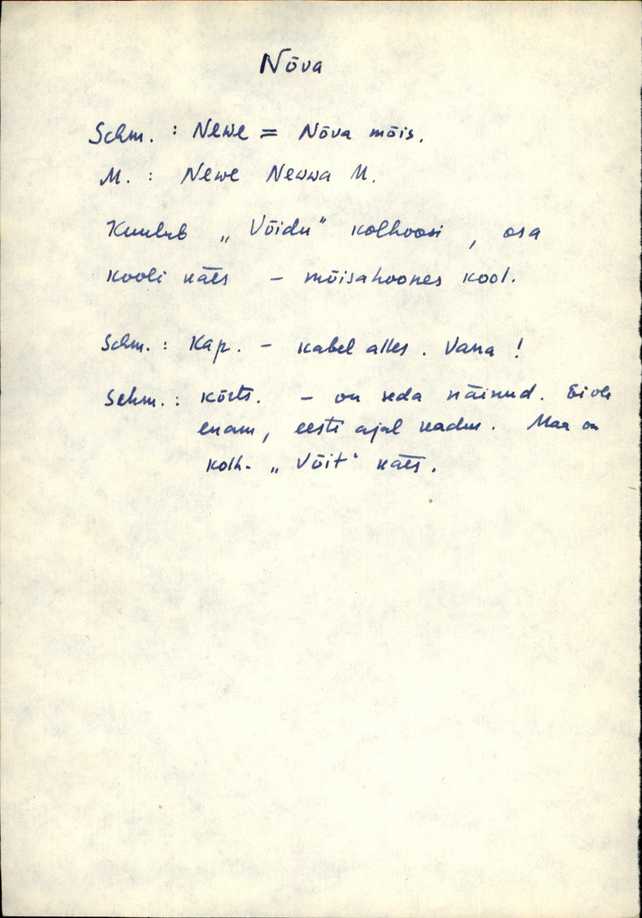 Nõva
Schm. : Newe = Nõva mõis.
M. : Newe Newwa M.
Kuulub „Võidu" kolhoosi, osa
kooli käes – mõisahoones kool.
Schm. : Kap. – kabel alles. Vana!
Schm. : kõrts. – on seda näinud. Ei ole
enam, eesti ajal kadus. Maa on
kolh. „Võit" käes.